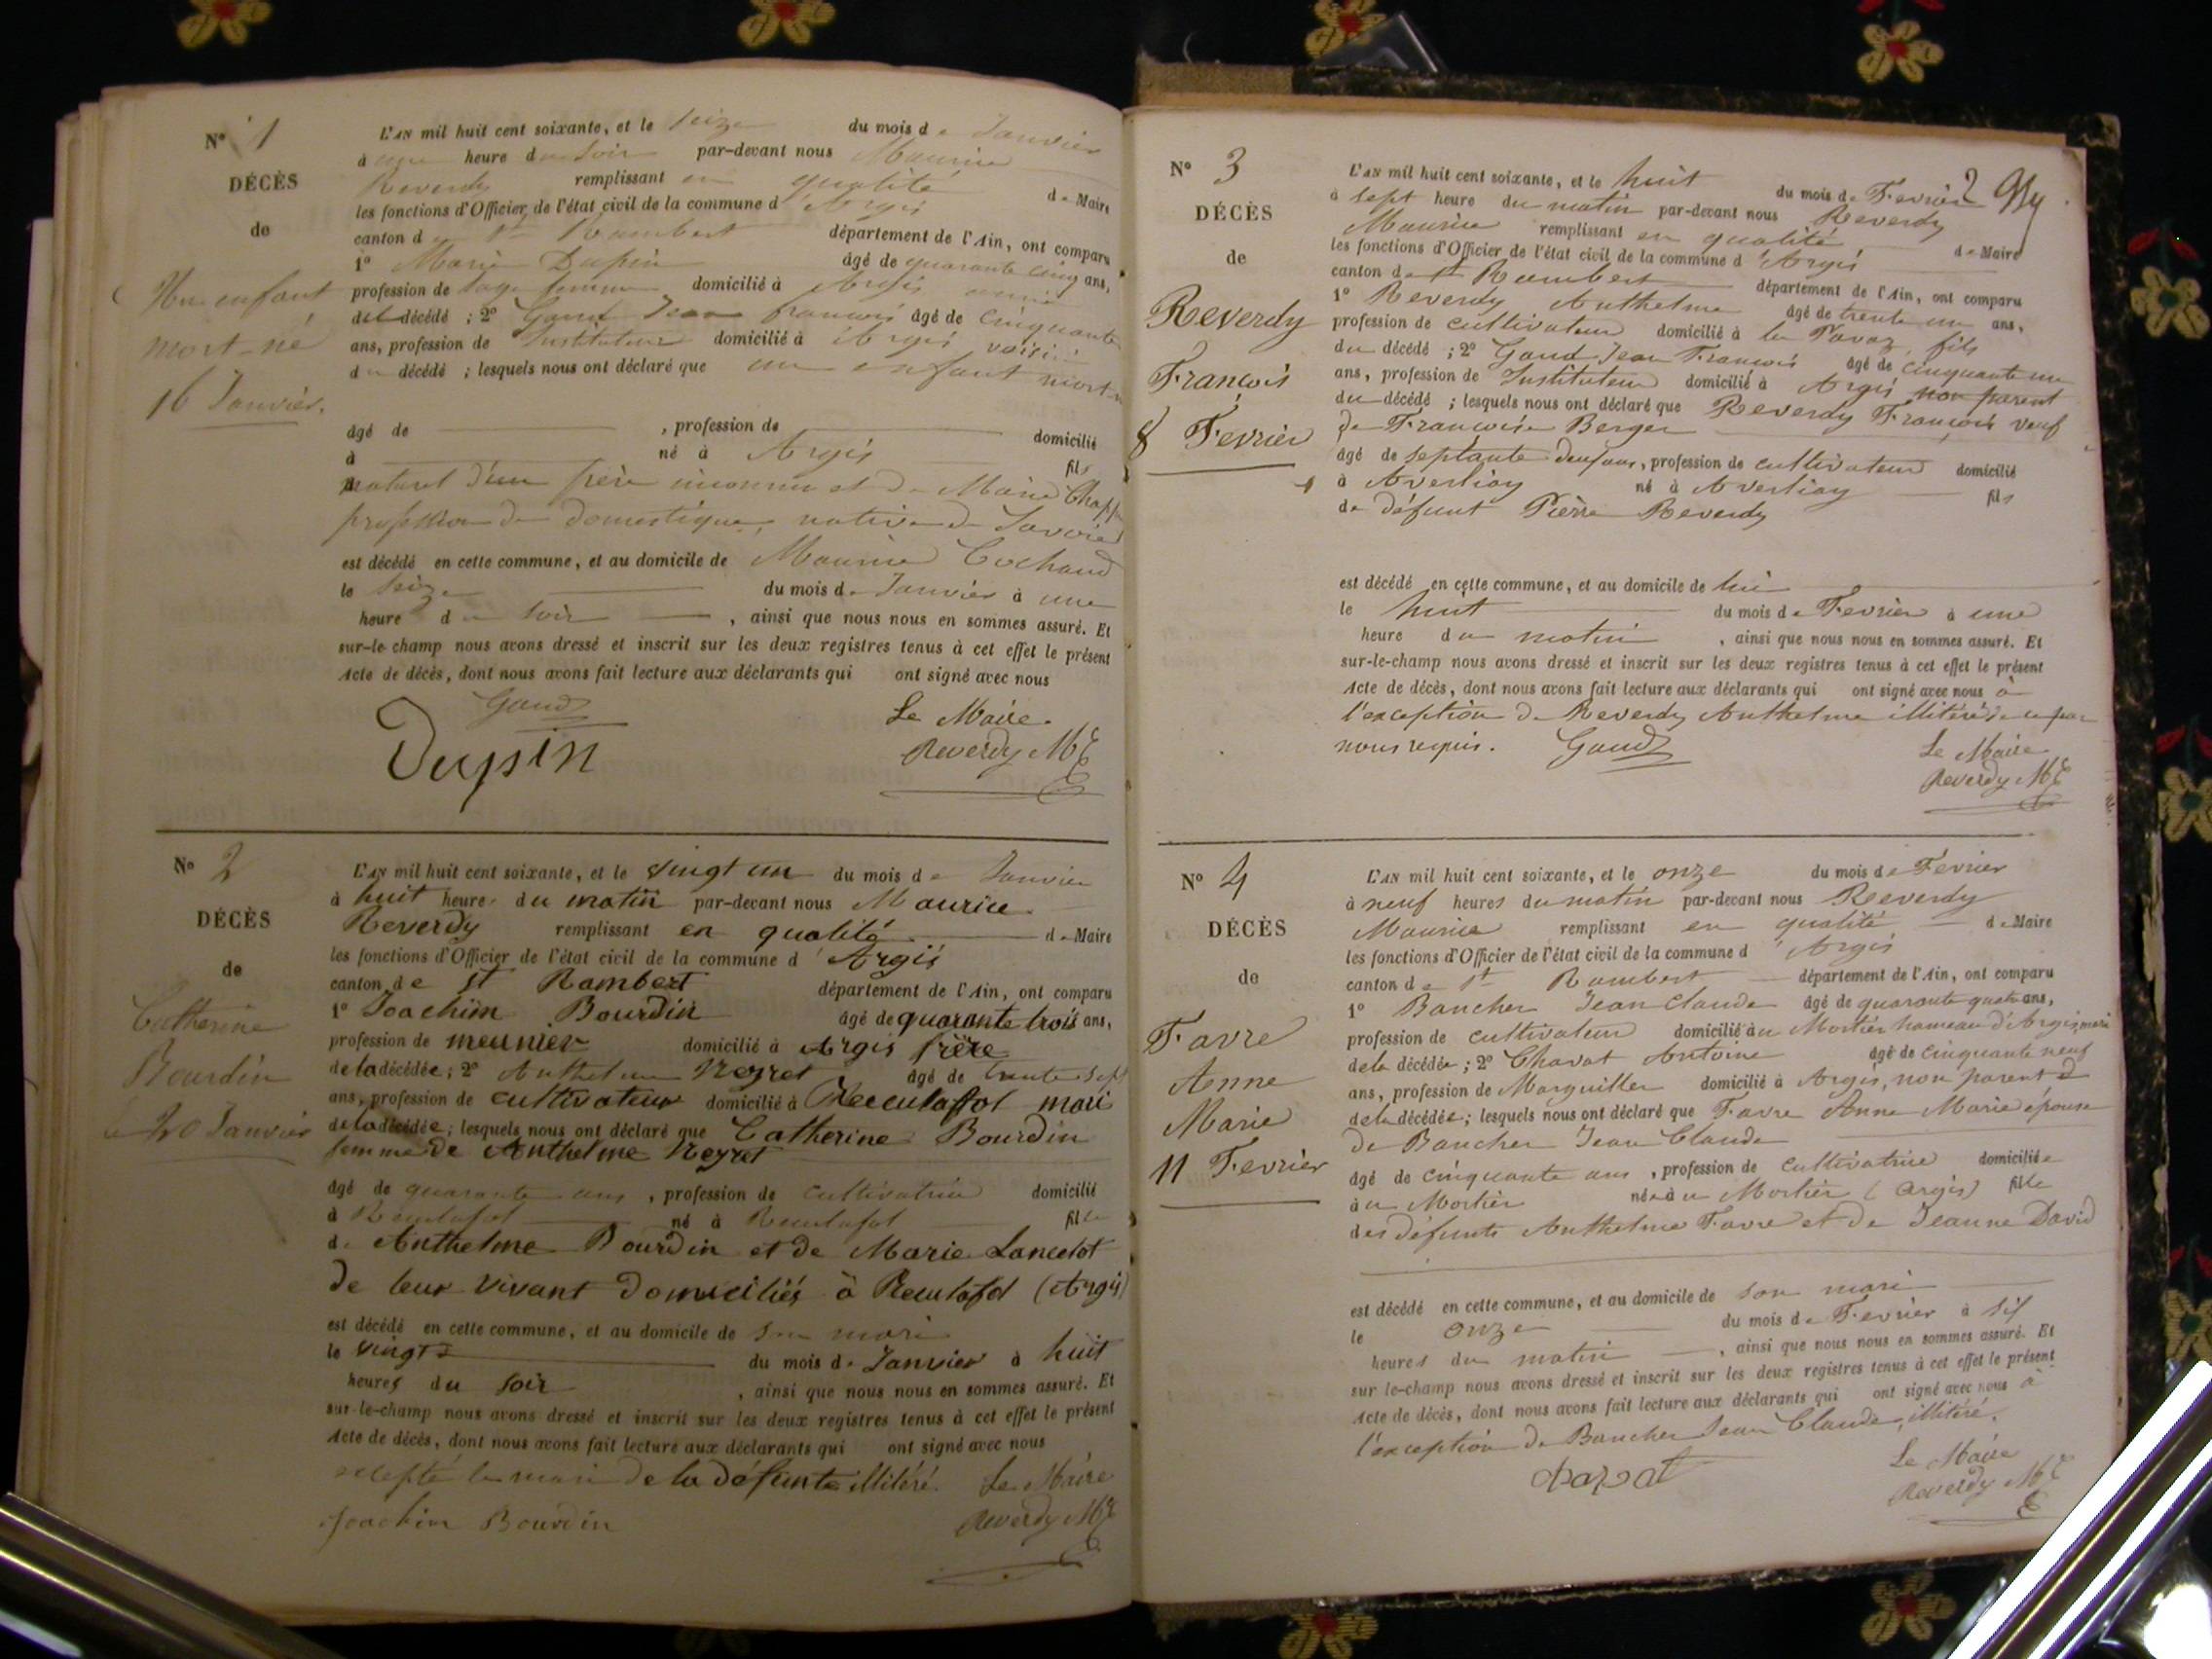 N° 1
DÉCÈS
de
Un enfant
mort-né
16 Janvier.
L'AN mil huit cent soixante, et le seize du mois de Janvier
à une heure du soir par-devant nous Maurice
Reverdy remplissant en qualité de Maire
les fonctions d'Officier de l'état civil de la commune d'Argis
canton de St Rambert département de l'Ain, ont comparu
1° Marie Dupin âgé de quarante cinq ans,
profession de sage femme domicilié à Argis
du décédé ; 2° Gaud Jean François âgé de cinquante
ans, profession de Instituteur domicilié à Argis voisin
du décédé ; lesquels nous ont déclaré que un enfant mort-n
âgé de , profession de domicilié
à né à Argis fils
naturel d'un père inconnu et de Marie
profession de domestique, native de Savoie
est décédé en cette commune, et au domicile de Maurice Cochaud
le seize du mois de Janvier à une
heure du soir , ainsi que nous nous en sommes assuré. Et
sur-le-champ nous avons dressé et inscrit sur les deux registres tenus à cet effet le présent
Acte de décès, dont nous avons fait lecture aux déclarants qui ont signé avec nous
Gaud Le Maire.
Dupin Reverdy
N° 2
DÉCÈS
de
Catherine
Bourdin
20 Janvier
L'AN mil huit cent soixante, et le vingt un du mois de Janvier
à huit heure du matin par-devant nous Maurice
Reverdy remplissant en qualité de Maire
les fonctions d'Officier de l'état civil de la commune d'Argis
canton de St Rambert département de l'Ain, ont comparu
1° Joachim Bourdin âgé de quarante trois ans,
profession de meunier domicilié à Argis frère
de la décédée ; 2° Anthelme Neyret âgé de trente sept
ans, profession de cultivateur domicilié à Reculaffol mari
de la décédée ; lesquels nous ont déclaré que Catherine Bourdin
femme de Anthelme Neyret
âgé de quarante ans , profession de cultivatrice domicilié
à Reculafol né à Reculafol fille
de Anthelme Bourdin et de Marie Lancelot
de leur vivant domiciliés à Reculafol (Argis)
est décédé en cette commune, et au domicile de son mari
le vingt du mois de Janvier à huit
heures du soir , ainsi que nous nous en sommes assuré. Et
sur-le-champ nous avons dressé et inscrit sur les deux registres tenus à cet effet le présent
Acte de décès, dont nous avons fait lecture aux déclarants qui ont signé avec nous
le mari de la défunte illitéré. Le Maire
Joachim Bourdin Reverdy
2
N° 3
DÉCÈS
de
Reverdy
François
8 Fevrier
L'AN mil huit cent soixante, et le huit du mois de Fevrier
à sept heure du matin par-devant nous Reverdy
Maurice remplissant en qualité de Maire
les fonctions d'Officier de l'état civil de la commune d'Argis
canton de St Rambert département de l'Ain, ont comparu
1° Reverdy Anthelme âgé de trente un ans,
profession de cultivateur domicilié à fils
du décédé ; 2° Gaud Jean François âgé de cinquante un
ans, profession de Instituteur domicilié à Argis non parent
du décédé ; lesquels nous ont déclaré que Reverdy François veuf
de Françoise Berger
âgé de septante deux ans, profession de cultivateur domicilié
à Averliay né à Averliay fils
de défunt Pierre Reverdy
est décédé en cette commune, et au domicile de lui
le huit du mois de Fevrier à une
heure du matin , ainsi que nous nous en sommes assuré. Et
sur-le-champ nous avons dressé et inscrit sur les deux registres tenus à cet effet le présent
Acte de décès, dont nous avons fait lecture aux déclarants qui ont signé avec nous à
l'exception de Reverdy Anthelme illitéré de ce par
nous requis. Gaud Le Maire
Reverdy
N° 4
DÉCÈS
de
Favre
Anne
Marie
11 Fevrier
L'AN mil huit cent soixante, et le onze du mois de Fevrier
à neuf heures du matin par-devant nous Reverdy
Maurice remplissant en qualité de Maire
les fonctions d'Officier de l'état civil de la commune d'Argis
canton de St Rambert département de l'Ain, ont comparu
1° Bancher Jean Claude âgé de quarante quatre ans,
profession de cultivateur domicilié au Mortier hameau d'Argis, mari
de la décédée ; 2° Chavat Antoine âgé de cinquante neuf
ans, profession de Marguiller domicilié à Argis, non parent
de la décédée ; lesquels nous ont déclaré que Favre Anne Marie épouse
de Bancher Jean Claude
âgé de cinquante ans , profession de cultivatrice domiciliée
au Mortier née au Mortier (Argis) fille
des défunts Anthelme Favre et de Jeanne David
est décédé en cette commune, et au domicile de son mari
le onze du mois de Fevrier à six
heures du matin , ainsi que nous nous en sommes assuré. Et
sur le-champ nous avons dressé et inscrit sur les deux registres tenus à cet effet le présent
Acte de décès, dont nous avons fait lecture aux déclarants qui ont signé avec nous à
l'exception de Bancher Jean Claude, illitéré.
Chavat Le Maire
Reverdy